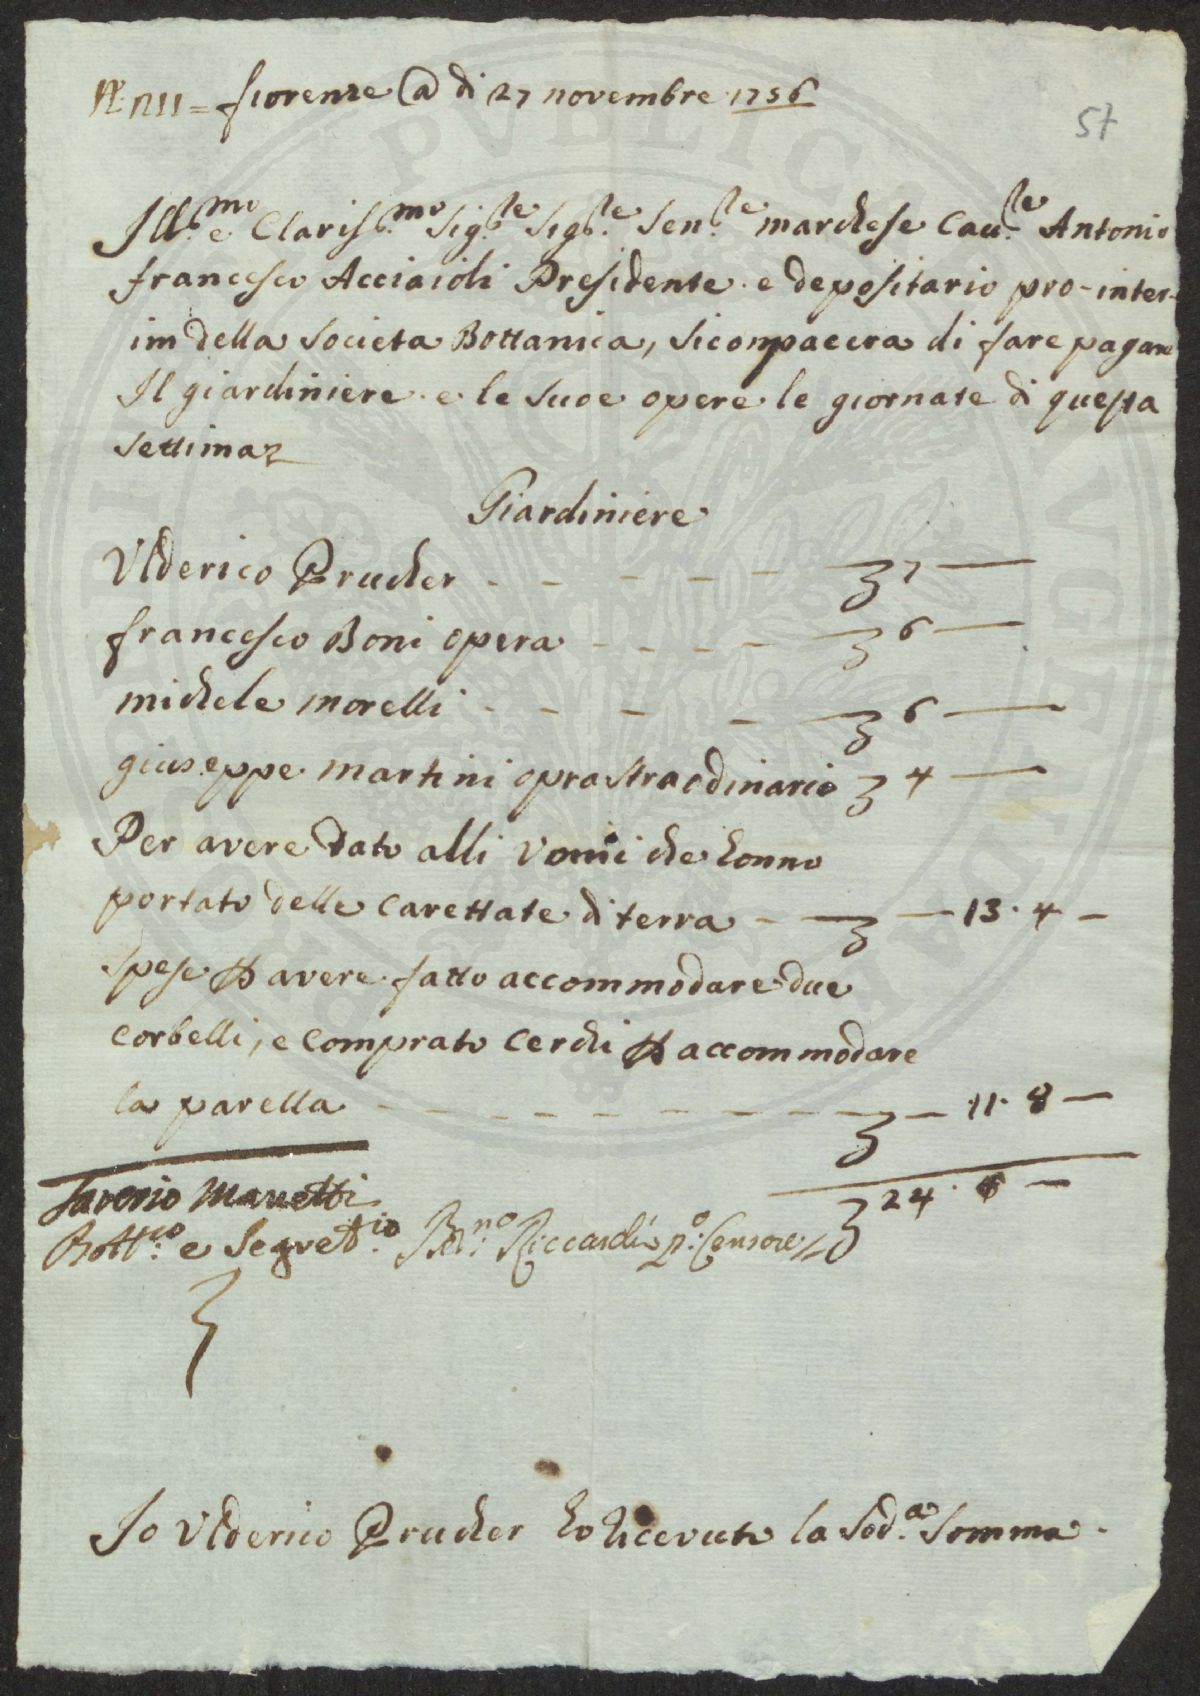 fiorenze @ di 27 novembre 1756
57
Ill.mo e Claris.mo Sig.re Sig.re Sen.re marchese Cau.re Antonio
francesco Acciaioli Presidente e depositario pro-inter-
im della Societa Bottanica, si compacera di fare pagare
Il giardiniere e le sue opere le giornate di questa
settima
Giardiniere
Ulderico Prucher - - - - - - 7 —
francesco Boni opera - - - - 6 —
michele morelli - - - - 6 —
giuseppe martini opra straodinario 4 —
Per avere dato alli vomi che honno
portato delle carettate di terra - — 13.4 —
spese p avere fatto accommodare due
corbelli, e comprato cerchi p accommodare
la parella - - - - - - - - — 11.8 —
24. —
Saverio Manetti
Bott.co e Segret.rio
Riccardi p.o Censore
Io Ulderico Prucher ho riceuuto la Sod.a Somma.